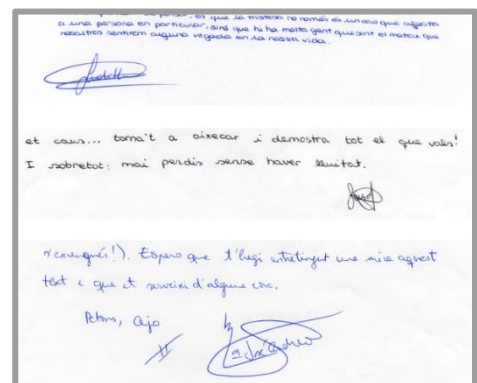 és que la tristesa no només és un cos que afecta
a una persona en particular, sinó que hi ha molta gent que sent el mateix que
nosaltres sentirem alguna vegada en la nostra vida.
et caus... torna't a aixecar i demostra tot el que vals!
I sobretot: mai perdis sense haver lluitat.
s'avengués!). Espero que t'hagi entretingut una mica aquest
text i que et serveixi d'alguna cosa.
Petons, Ajo
José Andreu